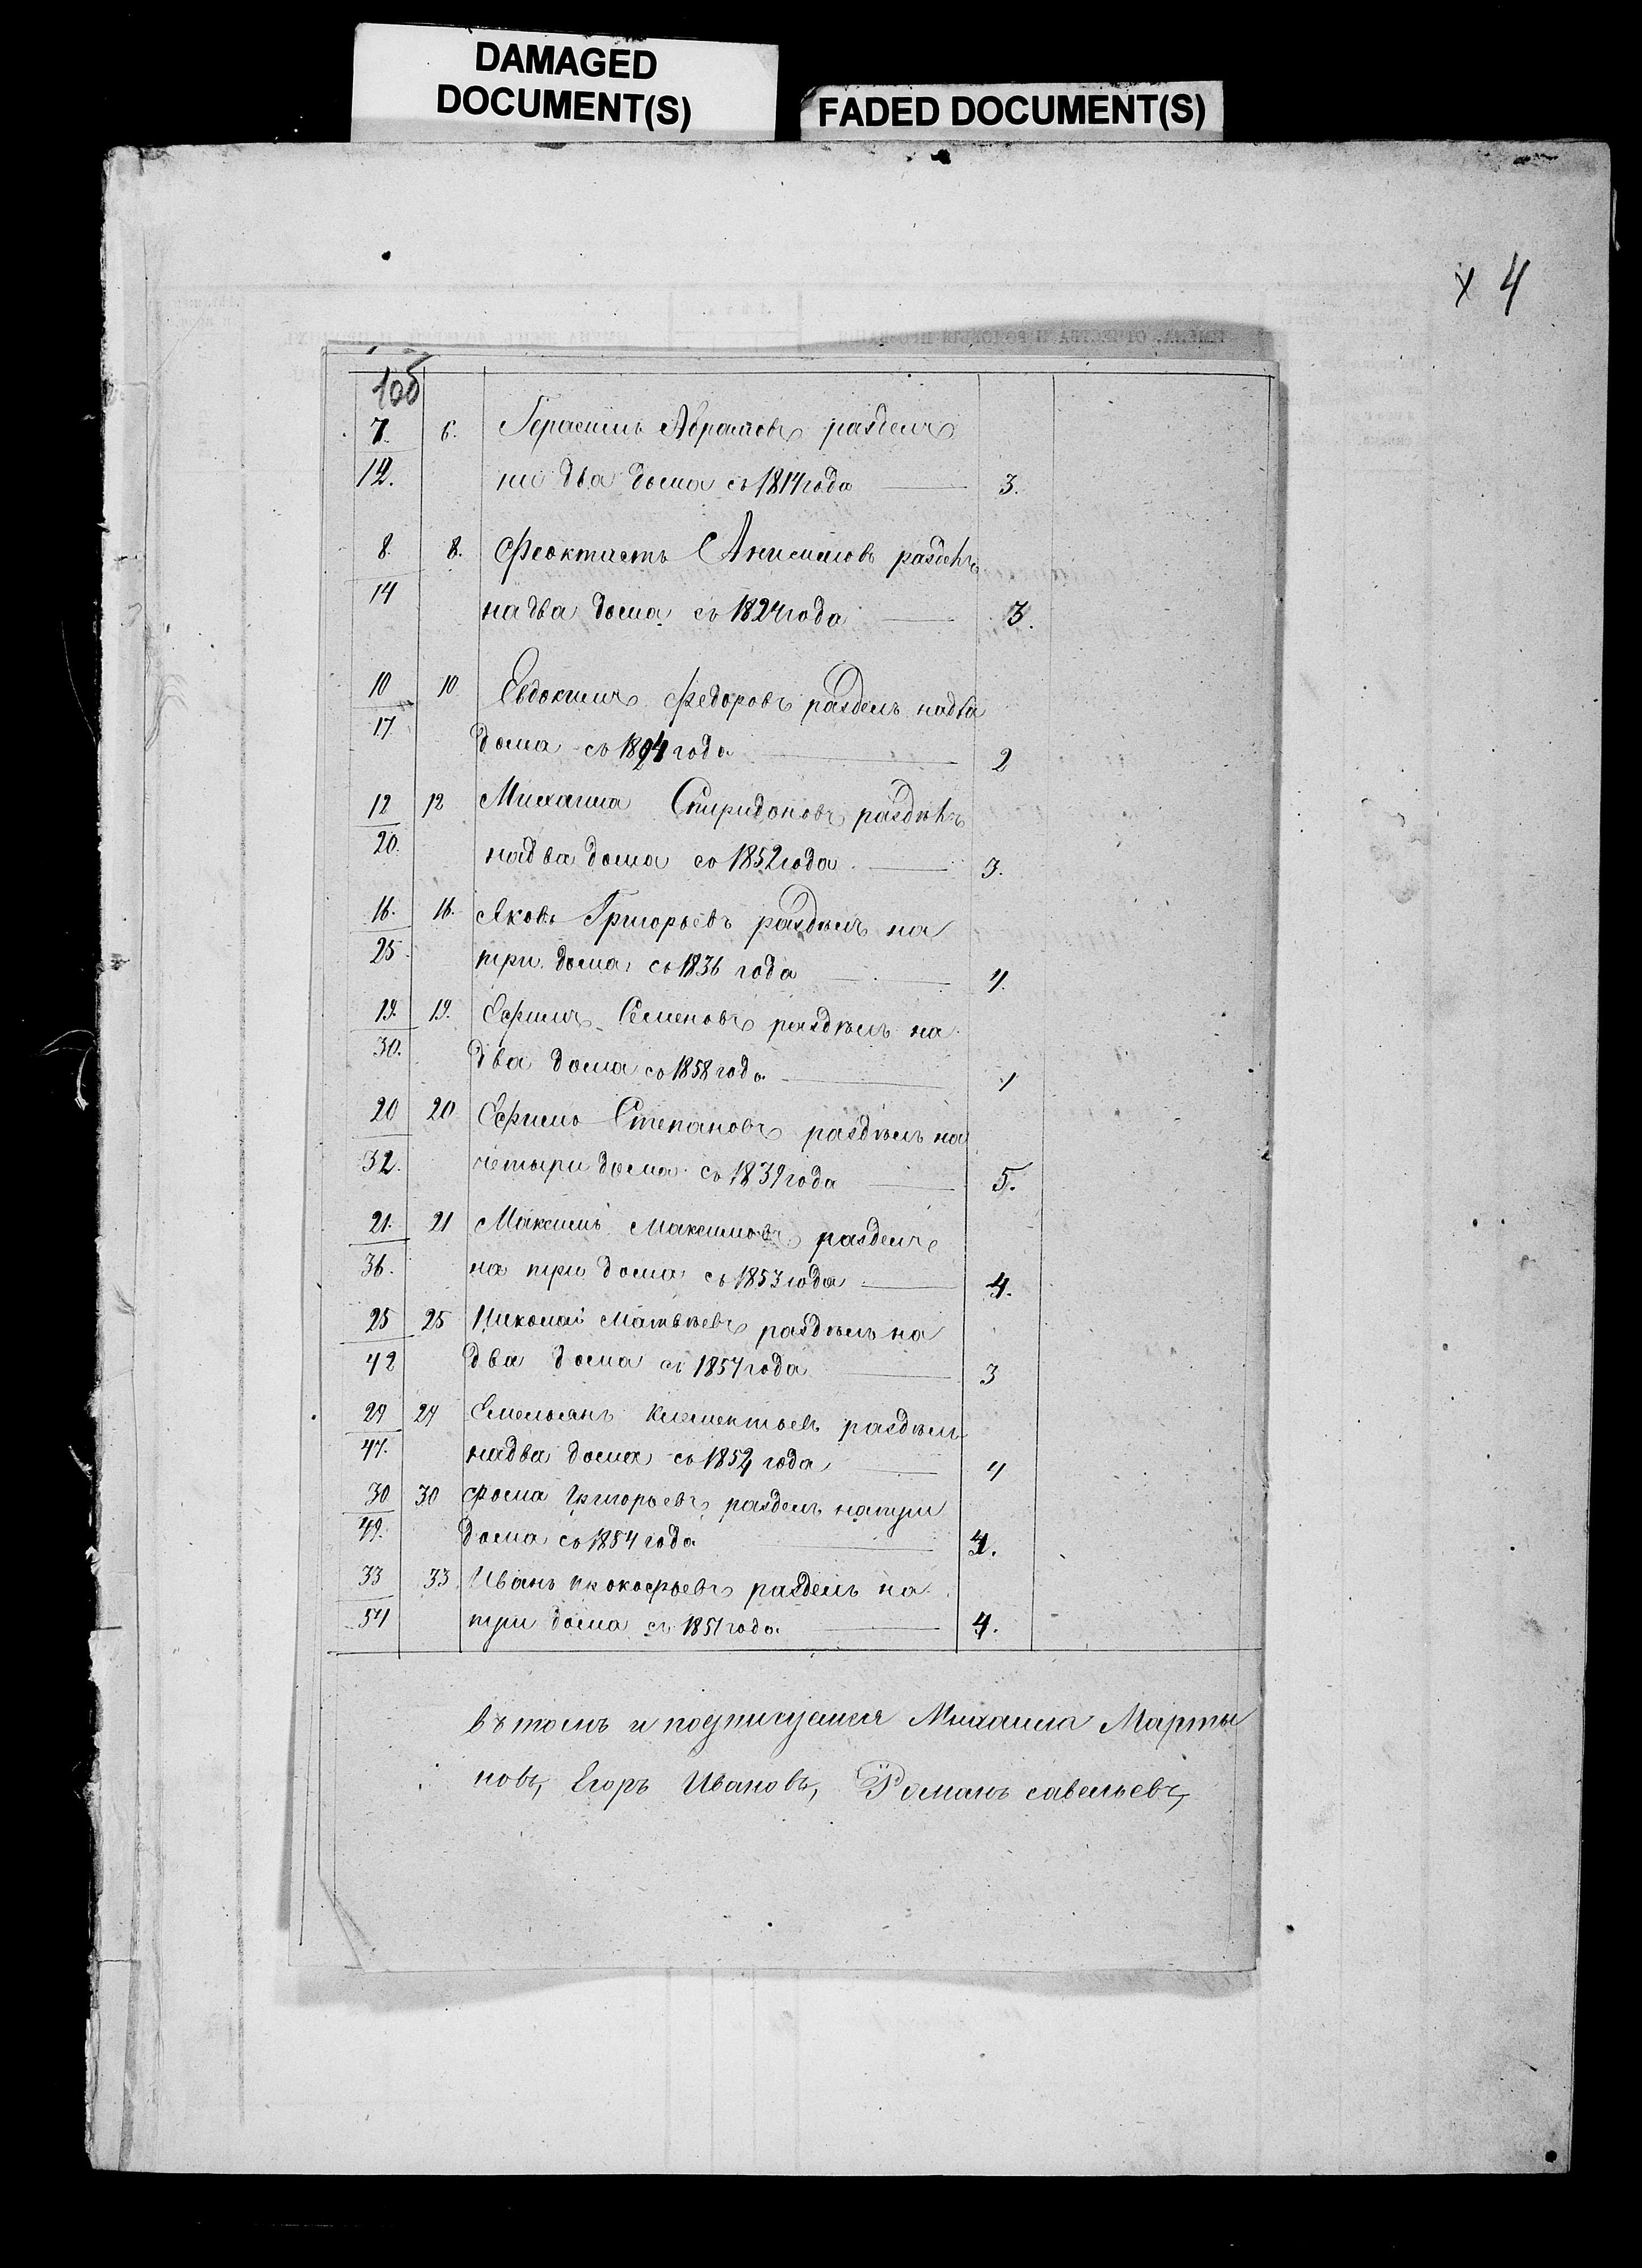 DAMAGED
DOCUMENT(S)
FADED DOCUMENT(S)
х 4
7. 6. Герасимъ Абрамовъ разделъ
12. на два дома съ 1814 года 3.
8. 8. Феоктистъ Анисимовъ раздѣлъ
14 на два дома съ 1824 года 3.
10 10 Евдокимъ Федоровъ разделъ на два
17 дома съ года 2
12 12 Михаила Спиридоновъ раздѣлъ
20. на два дома со 1852 года 3.
16. 16. Яковъ Григорьевъ раздѣлъ на
25 три дома съ 1836 года 4.
19. 19. Ефимъ Семеновъ раздѣлъ на
30. два дома со 1858 года
20 20 Ефимъ Степановъ раздѣлъ на
32. четыри дома съ 1839 года 5.
21. 21 Максимъ Максимовъ разделъ
36. на три дома съ 1853 года 4.
25 25 Николай Матвѣевъ раздѣлъ на
42 два дома съ 1854 года 3
29 29 Емельянъ Клементьевъ раздѣлъ
47. на два дома съ 1854 года 4
30 30 Фома Григорьевъ разделъ на три
49. дома съ 1854 года 4.
33 33 Иванъ Прокофьевъ разделъ на
54 три дома съ 1851 года 4.
въ томъ и подписуемся Михаила Марты
новъ, Егоръ Ивановъ, Романъ савельевъ,